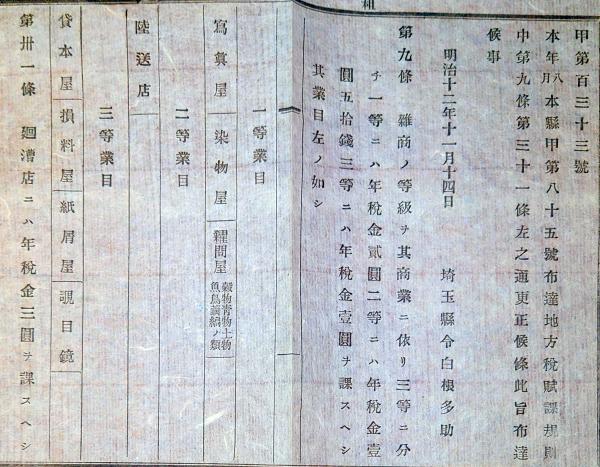 甲第百三十三號
本年八月本縣甲第八十五號布達地方税賦課規則
中第九條第三十一條左之通更正候條此旨布達
候事
明治十二年十一月十四日　埼玉縣令白根多助
第九條　雜商ノ等級ヲ其商業ニ依リ三等ニ分
チ一等ニハ年税金貳圓二等ニハ年税金壹
圓五拾錢三等ニハ年税金壹圓ヲ課スヘシ
其業目左ノ如シ
一等業目
寫眞屋　染物屋　糶問屋 穀物青物土物
魚鳥繭綿ノ類
二等業目
陸送店
三等業目
貸本屋　損料屋　紙屑屋　覗目鏡
第卅一條　廻漕店ニハ年税金三圓ヲ課スヘシ